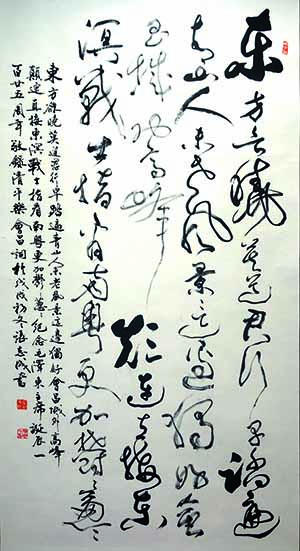 东方欲曉莫道君行早踏遍
青山人未老風景这边獨好會
昌城外高峰顛連直接东
溟戰士指看南粤更加鬱蔥蔥
東方欲曉莫道君行早踏遍青山人未老風景這邊獨好會昌城外高峰
顛連直接東溟戰士指看南粤更加鬱蔥蔥紀念毛澤東主席誕辰一
百廿五周年敬錄清平樂會昌詞於戊戌初冬志成書